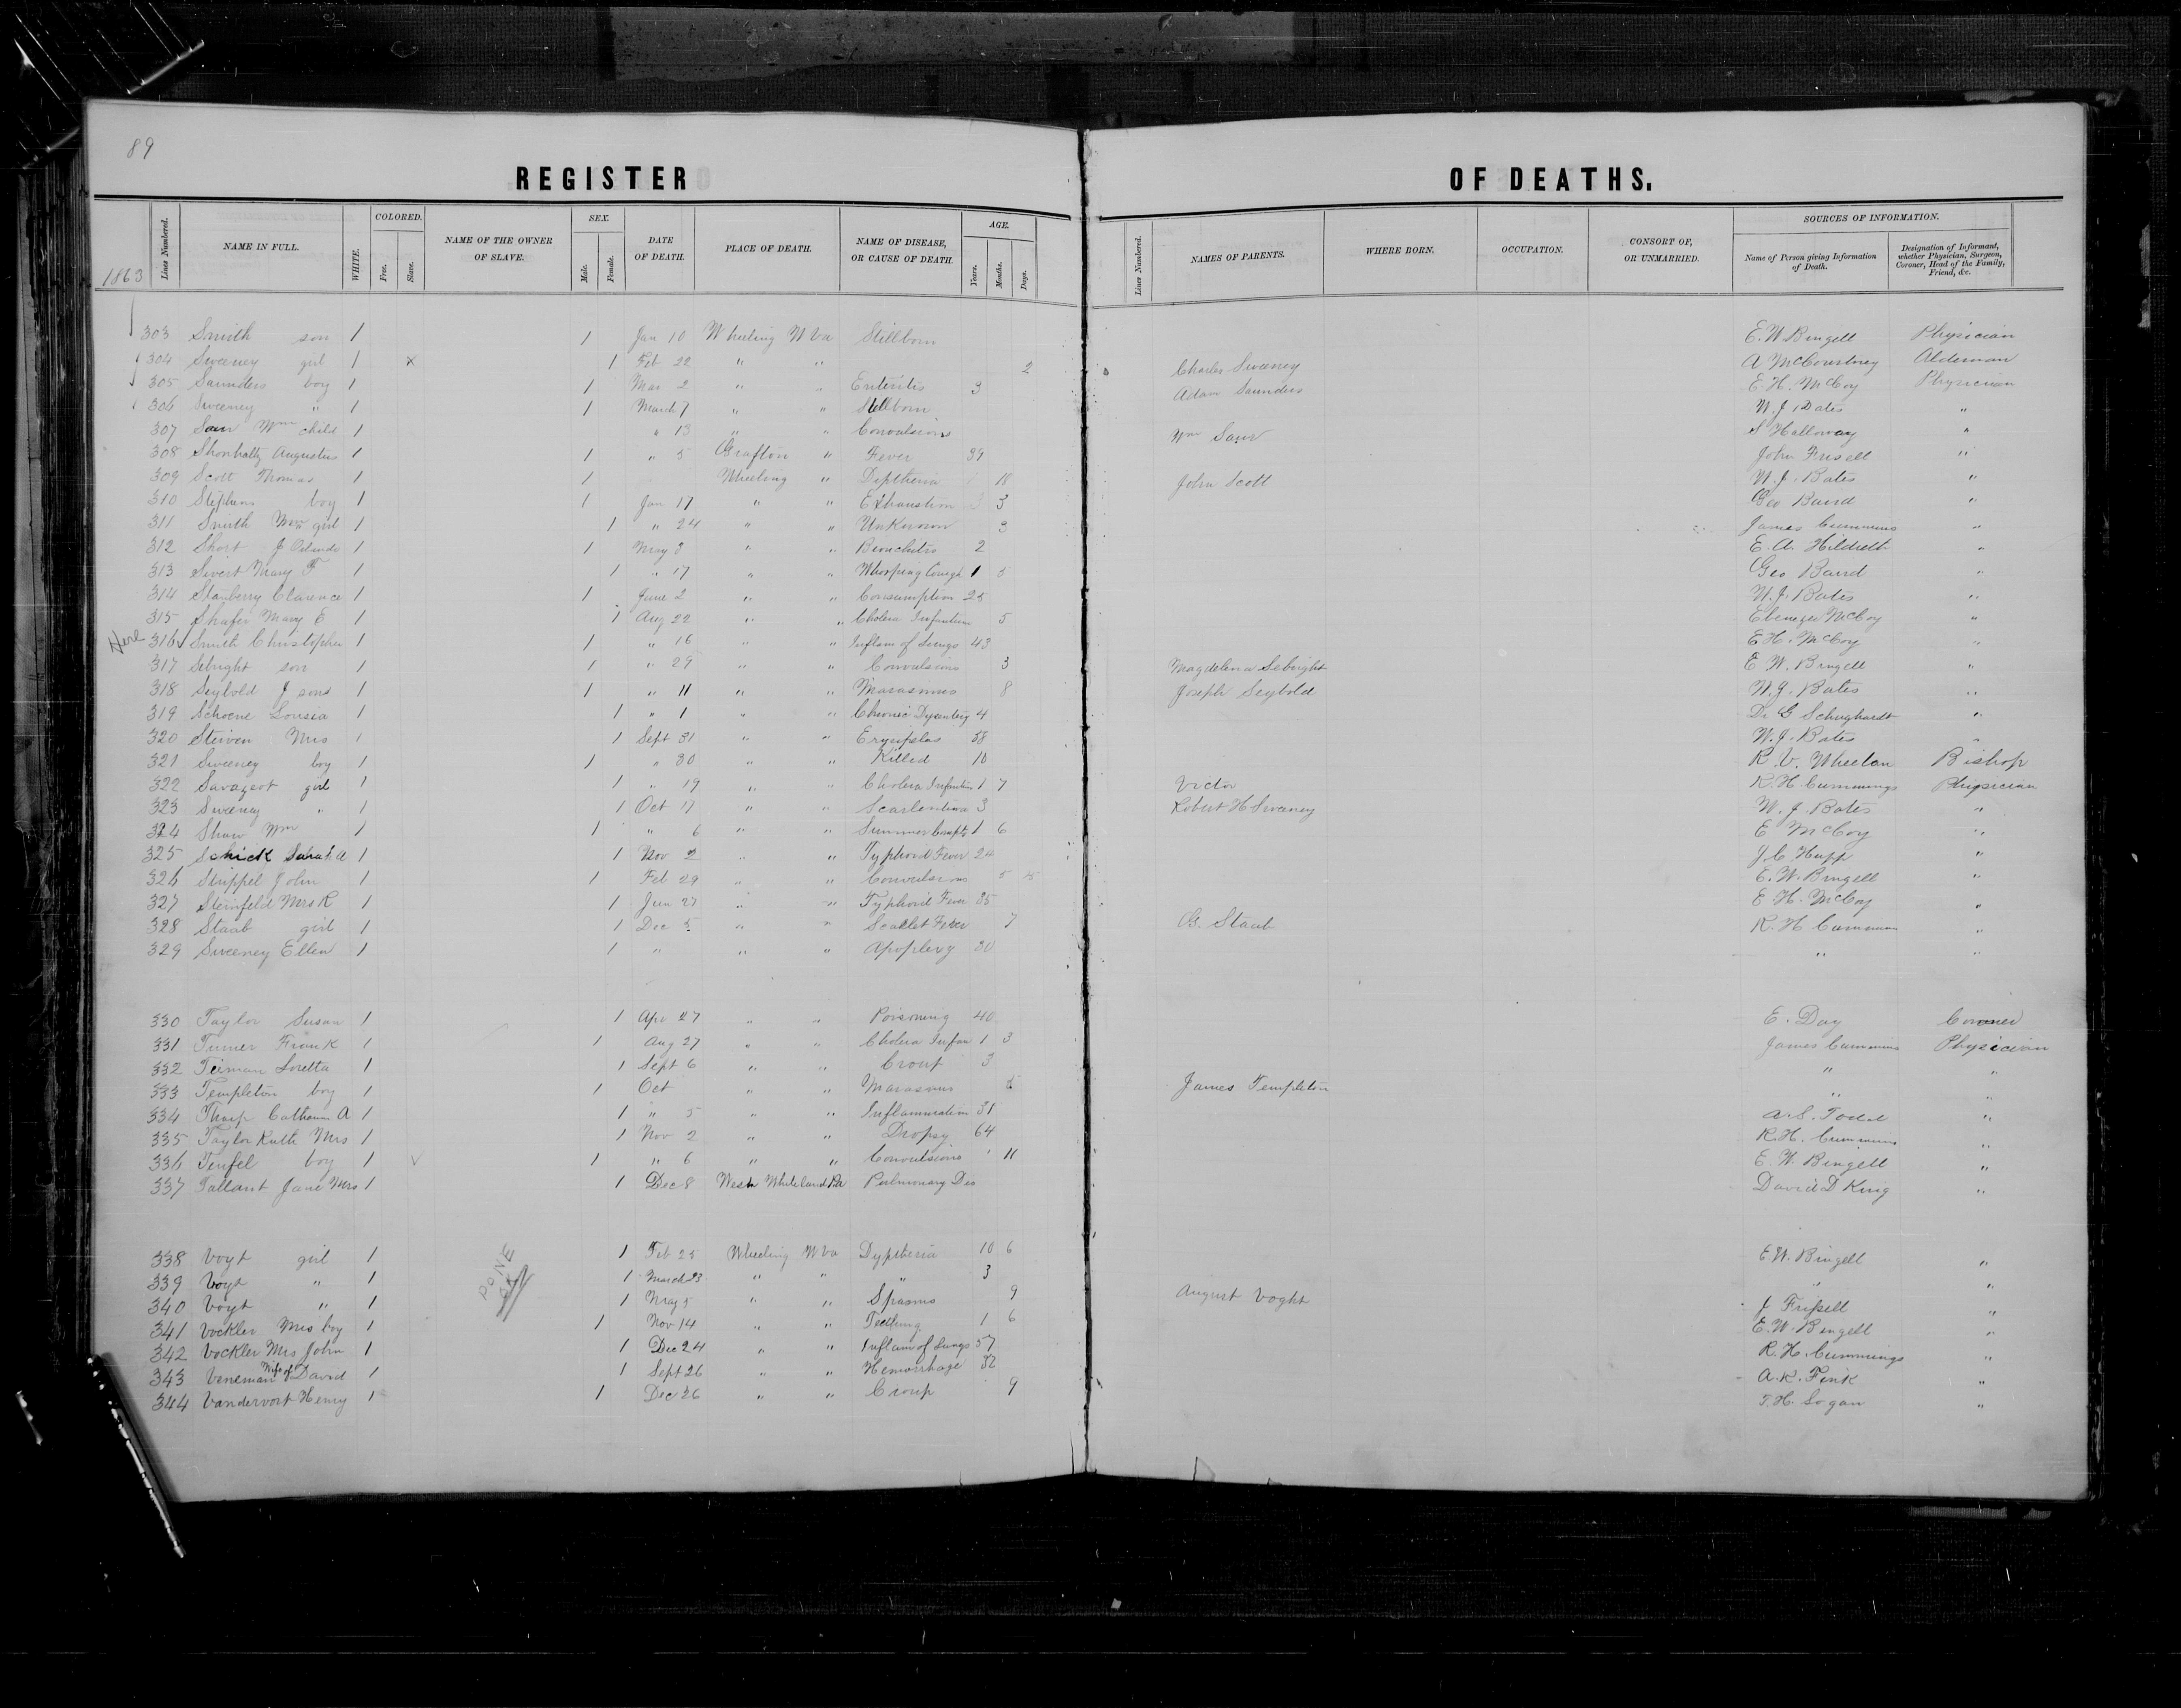 89
REGISTER OF DEATHS.
1863
Lines Numbered. NAME IN FULL. WHITE. COLORED. Free. Slave. NAME OF THE OWNER OF SLAVE. SEX. Male. Female. DATE OF DEATH. PLACE OF DEATH. NAME OF DISEASE, OR CAUSE OF DEATH. AGE. Years. Months. Days. Lines Numbered. NAMES OF PARENTS. WHERE BORN. OCCUPATION. CONSORT OF, OR UNMARRIED. SOURCES OF INFORMATION. Name of Person giving Information of Death. Designation of Informant, whether Physician, Surgeon, Coroner, Head of the Family, Friend, &c.
303 Smith son 1 1 Jan 10 Wheeling W Va Stillborn E. W. Bingell Physician
304 Sweeney girl 1 x 1 Feb 22 " " 2 Charles Sweeney A McCourtney Alderman
305 Saunders boy 1 1 Mar 2 " " Enteritis 3 Adam Saunders E. H. McCoy Physician
306 Sweeney " 1 1 March 7 " " Stillborn W. J. Bates "
307 Saur Wm child 1 " 13 " " Convulsions Wm Saur S Halloway "
308 Shonhaltz Augustus 1 1 " 5 Grafton " Fever 39 John Frisell "
309 Scott Thomas 1 1 Wheeling " Diptheria 18 John Scott W. J. Bates "
310 Stephens boy 1 1 Jan 17 " " Exhaustion 3 Geo Baird "
311 Smith Wm girl 1 1 " 24 " " Unknown 3 James Cummins "
312 Short J Orlando 1 1 May 3 " " Bronchitis 2 E. A. Hildreth "
313 Sivert Mary F 1 1 " 17 " " Whooping Cough 1 5 Geo Baird "
314 Stanberry Clarence 1 1 June 2 " " Consumption 25 W. J. Bates "
315 Shafer Mary E 1 1 Aug 22 " " Cholera Infantum 5 Ebenezer McCoy "
Here 316 Smith Christopher 1 1 " 16 " " Inflam of Lungs 43 E H. McCoy "
317 Sebright son 1 1 " 29 " " Convulsions 3 Magdelena Sebright E W. Bingell "
318 Seybold J sons 1 1 " 11 " " Marasmus 8 Joseph Seybold W. J. Bates "
319 Schoene Lousia 1 1 " 1 " " Chronic Dysentery 4 Dr G Schughardt "
320 Steiven Mrs 1 1 Sept 31 " " Erysipelas 58 W. J. Bates "
321 Sweeney boy 1 1 " 30 Killed 10 R. V. Wheelan Bishop
322 Savageot girl 1 1 " 19 " " Cholera Infantum 1 7 Victor R. H Cummings Physician
323 Sweeney " 1 1 Oct 17 " " Scarlentina 3 Robert H Sweeney W. J. Bates "
324 Shaw Wm 1 1 " 6 " " Summer Complt 1 6 E McCoy "
325 Schick Sarah A 1 1 Nov 2 " " Typhoid Fever 24 J. C Hupp "
326 Strippel John 1 1 Feb 29 " " Convulsions 5 E. W. Bingell "
327 Steinfeld Mrs R 1 1 Jun 27 " " Typhoid Fever 35 E H. McCoy "
328 Staab girl 1 1 Dec 5 " " Scarlet Fever 7 G. Staub R. H Cummins "
329 Sweeney Ellen 1 1 " " " Apoplexy 30 " "
330 Taylor Susan 1 1 Apr 27 " " Poisoning 40 E. Day Coroner
331 Turner Frank 1 1 Aug 27 " " Cholera Infan 1 3 James Cummins Physician
332 Teiman Loretta 1 1 Sept 6 " " Croup 3 " "
333 Templeton boy 1 1 Oct " " Marasmus James Templeton " "
334 Tharp Catharine A 1 1 " 5 " " Inflammation 31 A. S. Todd "
335 Taylor Ruth Mrs 1 1 Nov 2 " " Dropsy 64 R. H. Cummins "
336 Teufel boy 1 1 " 6 " " Convulsions 11 E. W. Bingell "
337 Tallant Jane Mrs 1 1 Dec 8 West Whiteland Pa Pulmonary Dis David D King "
338 Voyt girl 1 1 Feb 25 Wheeling W Va Dyptheria 10 6 E. W. Bingell "
DONE
339 Voyt " 1 1 March 23 " " " 3 " "
340 Voyt " 1 1 May 5 " " Spasms 9 August Voght J Frissell "
341 Vockler Mrs boy 1 1 Nov 14 " " Teething 1 6 E. W. Bingell "
342 Vockler Mrs John 1 1 Dec 24 " " Inflam of Lungs 57 R. H. Cummings "
343 Veneman Wife of David 1 1 Sept 26 " " Hemorrhage 32 A. K. Fink "
344 Vandervort Henry 1 1 Dec 26 " " Croup 9 T. H. Logan "